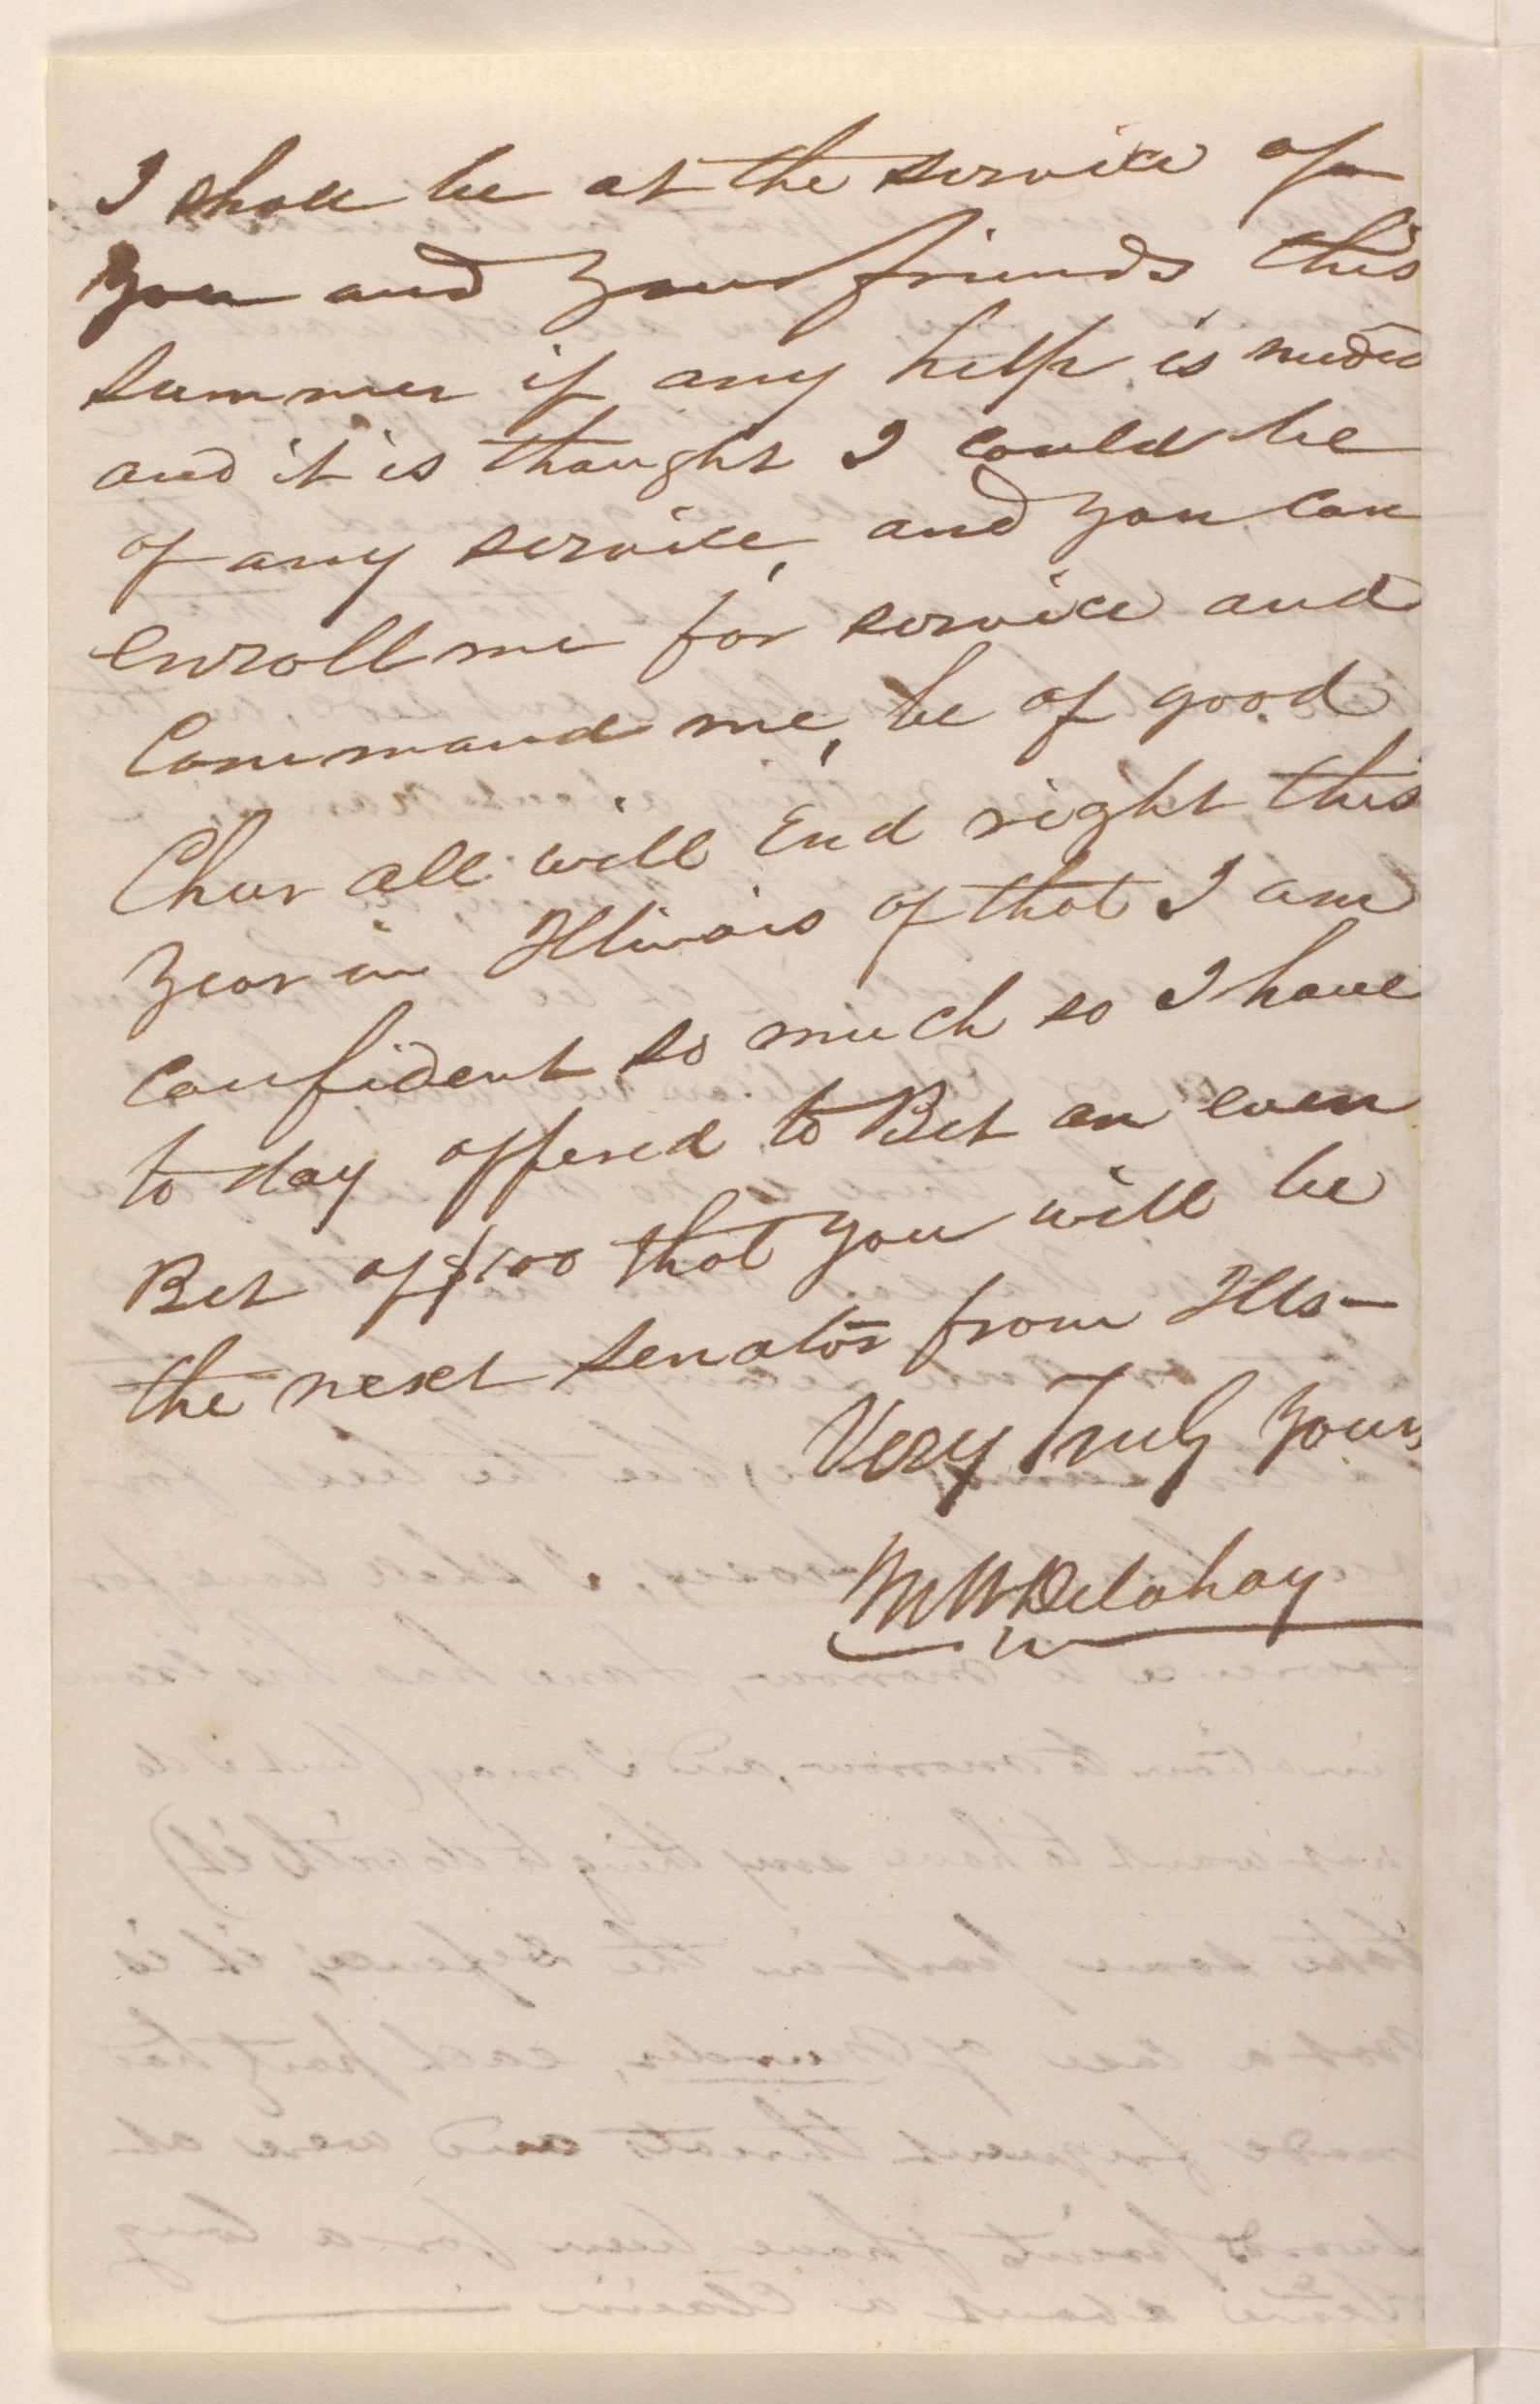 I shall be at the service of
you and your friends this
summer if any help is needed
and it is thought I could be
of any service, and you can
enroll me for service and
Command me, be of good
Chear all will End right this
year in Illinois of that I am
confident so much so I have
to day offered to Bet an even
Bet of $100 that you will be
the next senator from Ills—
Very Truly yours
M W Delahay